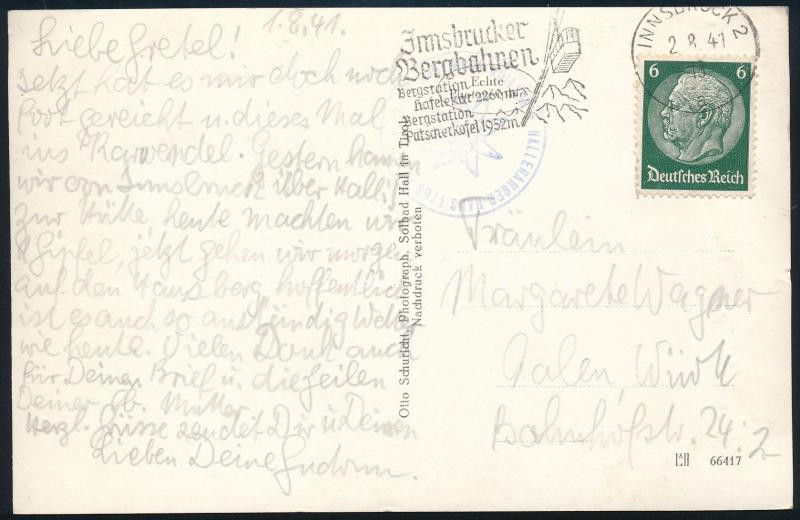 1.8.41.
Liebe Gretel!
Jetzt hat es mir doch noch
fort gereicht u. dieses Mal
ins Karwendel. Gestern kamen
wir von Innsbruck über Hall i/
zur Hütte, heute machten wir
Gipfel, jetzt gehen wir morgen
auf den hoffentlich
ist es auch so anständig Wetter
wie heute. Vielen Dank auch
für Deinen Brief u. die Zeilen
Deiner lb. Mutter
Herzl. Grüsse sendet Dir u. Deinen
Lieben Deine
Innsbrucker
Bergbahnen
Bergstation
Hafelekar 2260 m.
Bergstation
Patscherkofel 1952 m.
INNSBRUCK 2
2.8.41
6 6
Deutsches Reich
HALLERANGER-HAUS 1768
Otto Schuricht, Photograph, Solbad Hall in Tirol
Nachdruck verboten
Fräulein
Margarete Wagner
Aalen, Württ
Bahnhofstr. 24.2
66417